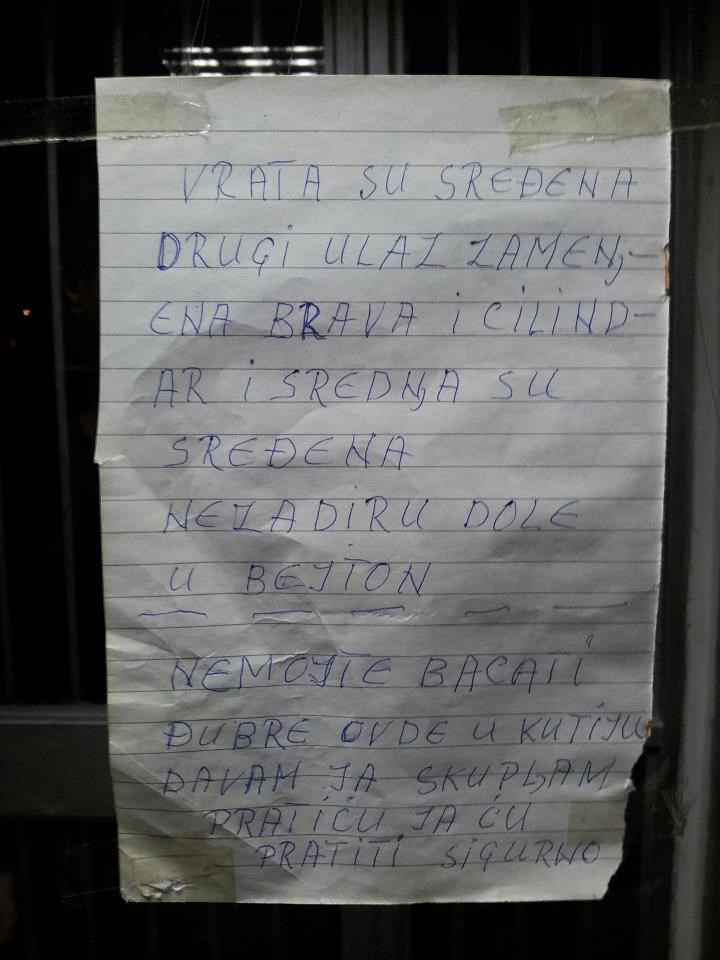 VRATA SU SREĐENA
DRUGI ULAZ ZAMENJ-
ENA BRAVA i CiLiND-
AR i SREDNJA SU
SREĐENA
NEZADiRU DOLE
U BEJTON
NEMOJTE BACATi
ĐUBRE OVDE U KUTiJU
DAVAM JA SKUPLJAM
PRATiĆU JA ĆU
PRATiTi SiGURNO